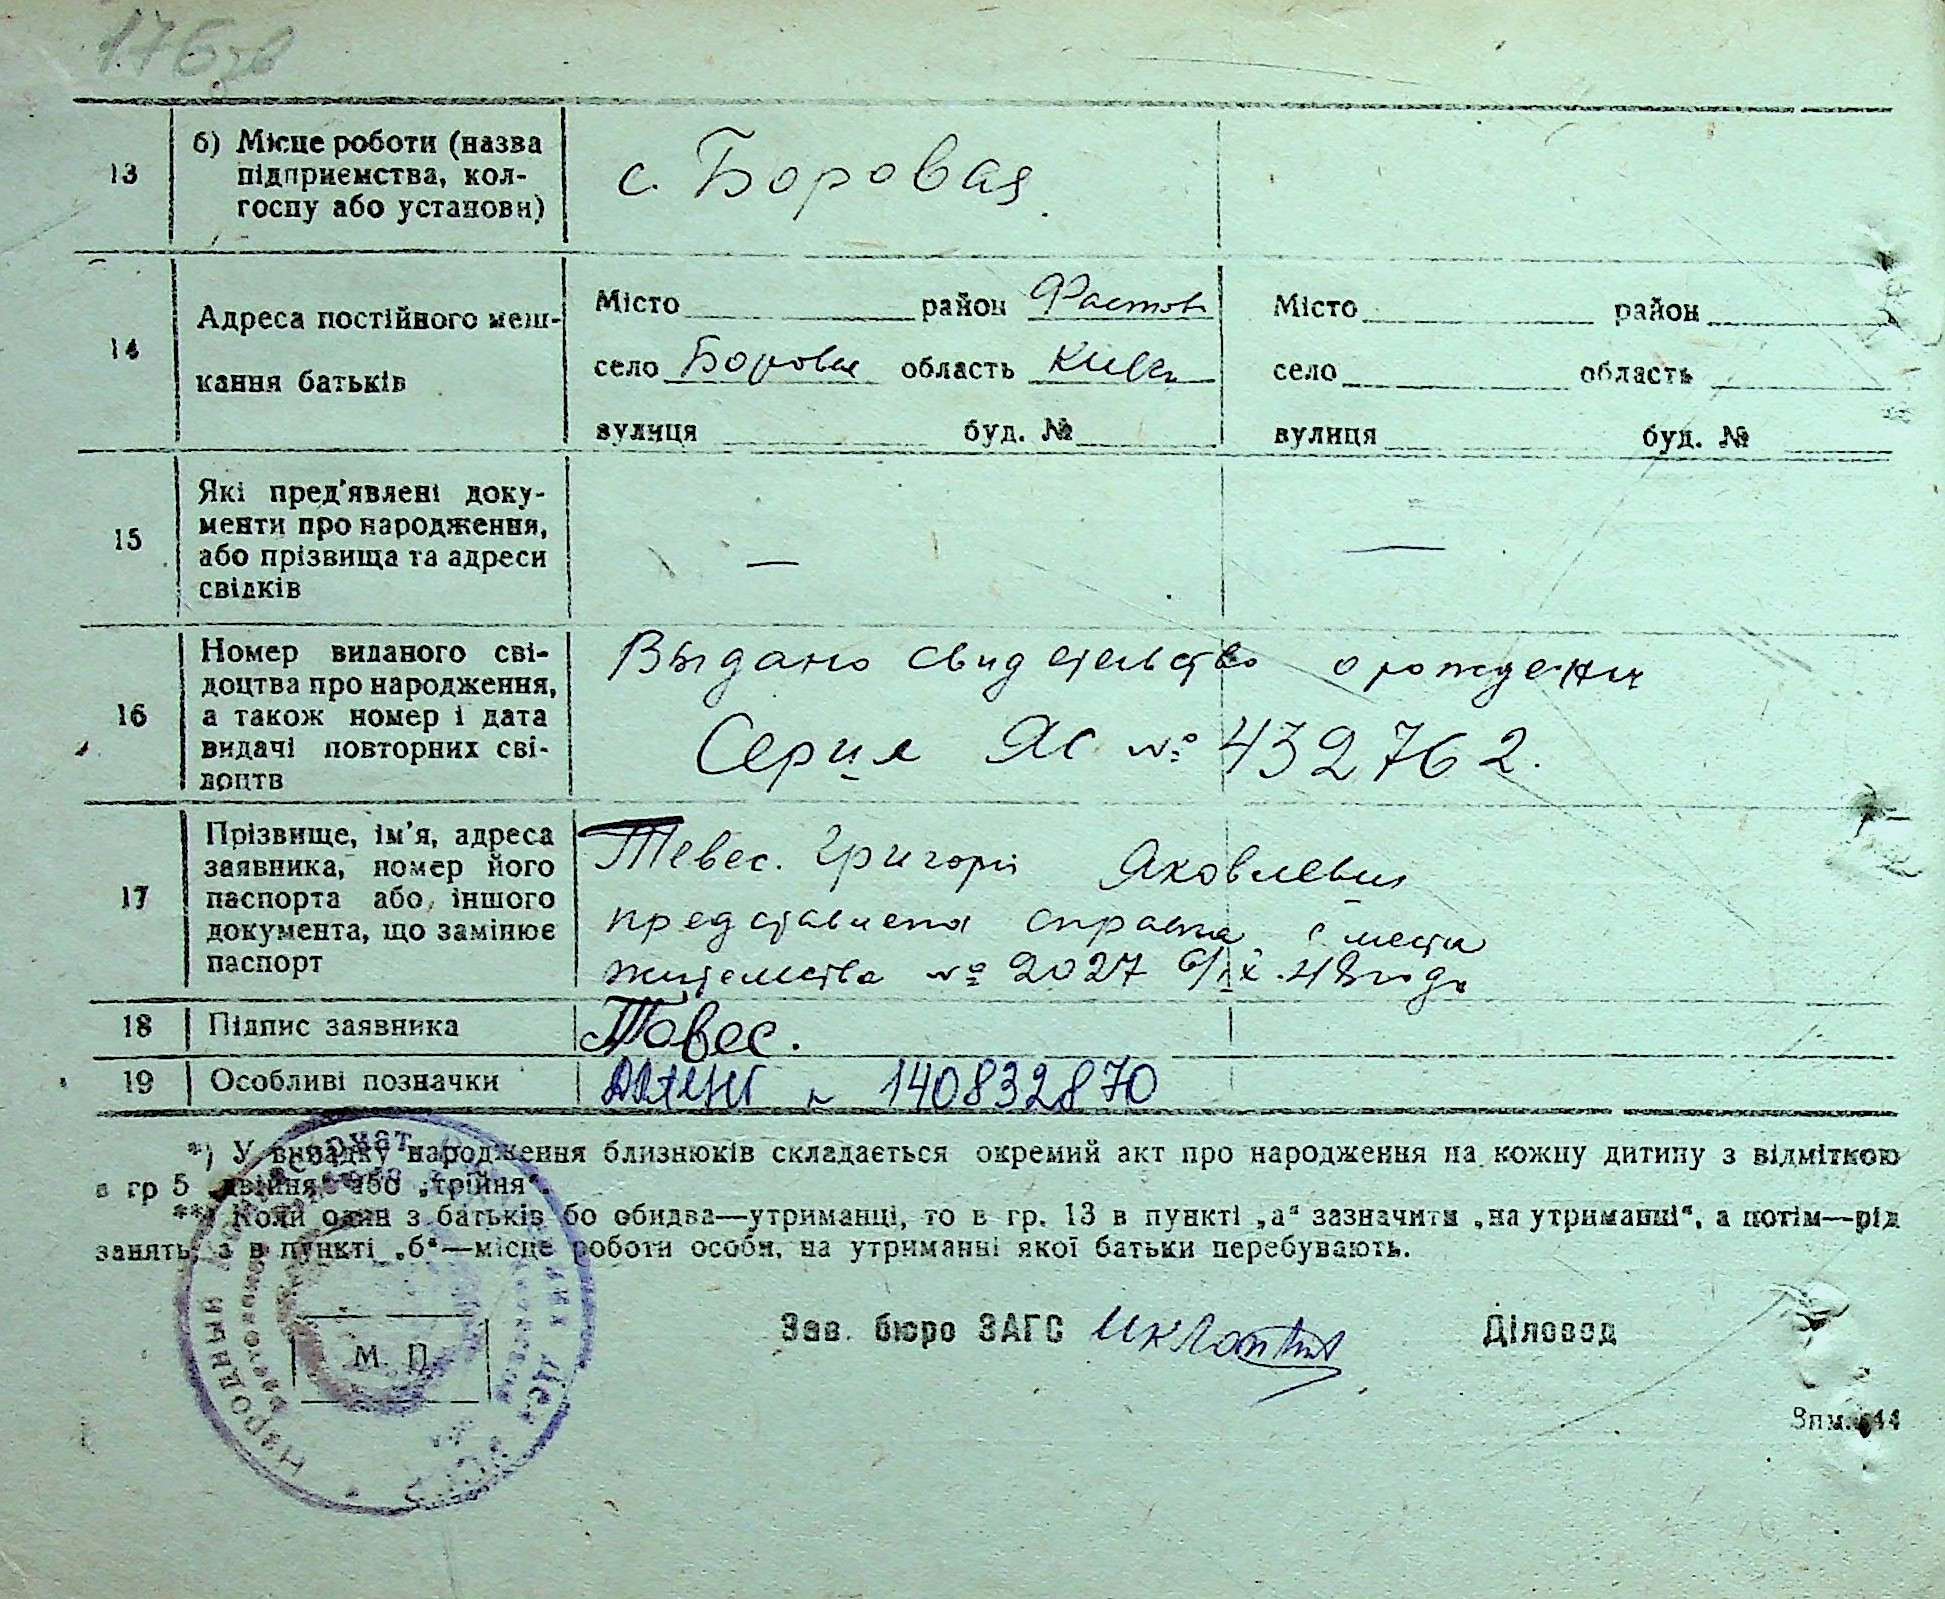 176зв
13
б) Місце роботи (назва
підприємства, кол-
госпу або установи)
с. Боровая
14
Адреса постійного меш-
кання батьків
Місто район Фастов
село Боровая область Киев
вулиця буд. №
Місто район
село область
вулиця буд. №
15
Які пред'явлені доку-
менти про народження,
або прізвища та адреси
свідків
—
—
16
Номер виданого сві-
доцтва про народження,
а також номер і дата
видачі повторних сві-
доцтв
Выдано свидетельство о рождении
Серия ЯС № 432762.
17
Прізвище, ім'я, адреса
заявника, номер його
паспорта або іншого
документа, що замінює
паспорт
Тевес. Григорий Яковлевич
представлена справка с места
жительства № 2027 6/IX.48 года
18
Підпис заявника
Тевес.
19
Особливі позначки
140832870
*) У випадку народження близнюків складається окремий акт про народження на кожну дитину з відміткою
в гр 5 „двійня“ або „трійня“.
**) Коли один з батьків бо обидва—утриманці, то в гр. 13 в пункті „а“ зазначити „на утриманні“, а потім—рід
занять, а в пункті „б“—місце роботи особи, на утриманні якої батьки перебувають.
Народный Комиссариат
М. П.
Зав. бюро ЗАГС
Діловод
Зам. 44